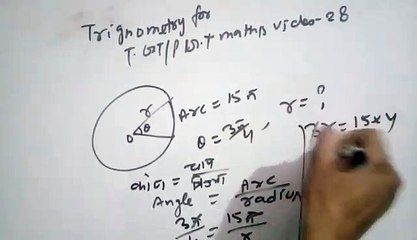 Trignometry for
T.GT/P.G.T maths video-28
r
O θ
Arc = 15π
r = ?
θ = 3π/4,
= 15×4
कोण = चाप/त्रिज्या
Angle = Arc/radius
3π/4 = 15π/r